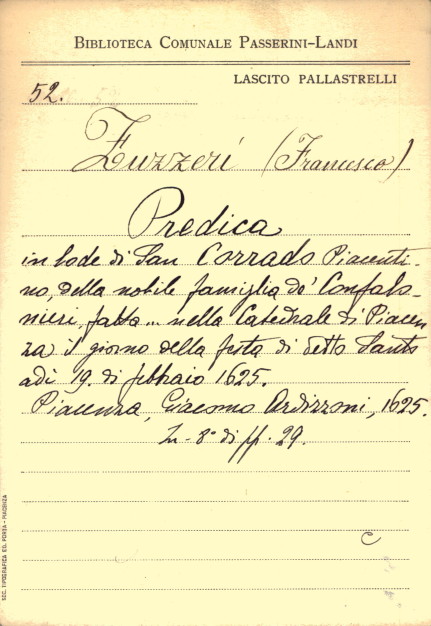 BIBLIOTECA COMUNALE PASSERINI-LANDI
LASCITO PALLASTRELLI
52.
Zuzzeri (Francesco)
Predica
in lode di San Corrado Piacenti-
no, della nobile famiglia de' Confalo-
nieri, fatta... nella Catedrale di Piacen
za il giorno della festa di detto Santo
adi 19. di febbraio 1625.
Piacenza, Giacomo Ardizzoni, 1625.
In-8° di ff. 29.
C
SOC. TIPOGRAFICA ED. PORTA - PIACENZA